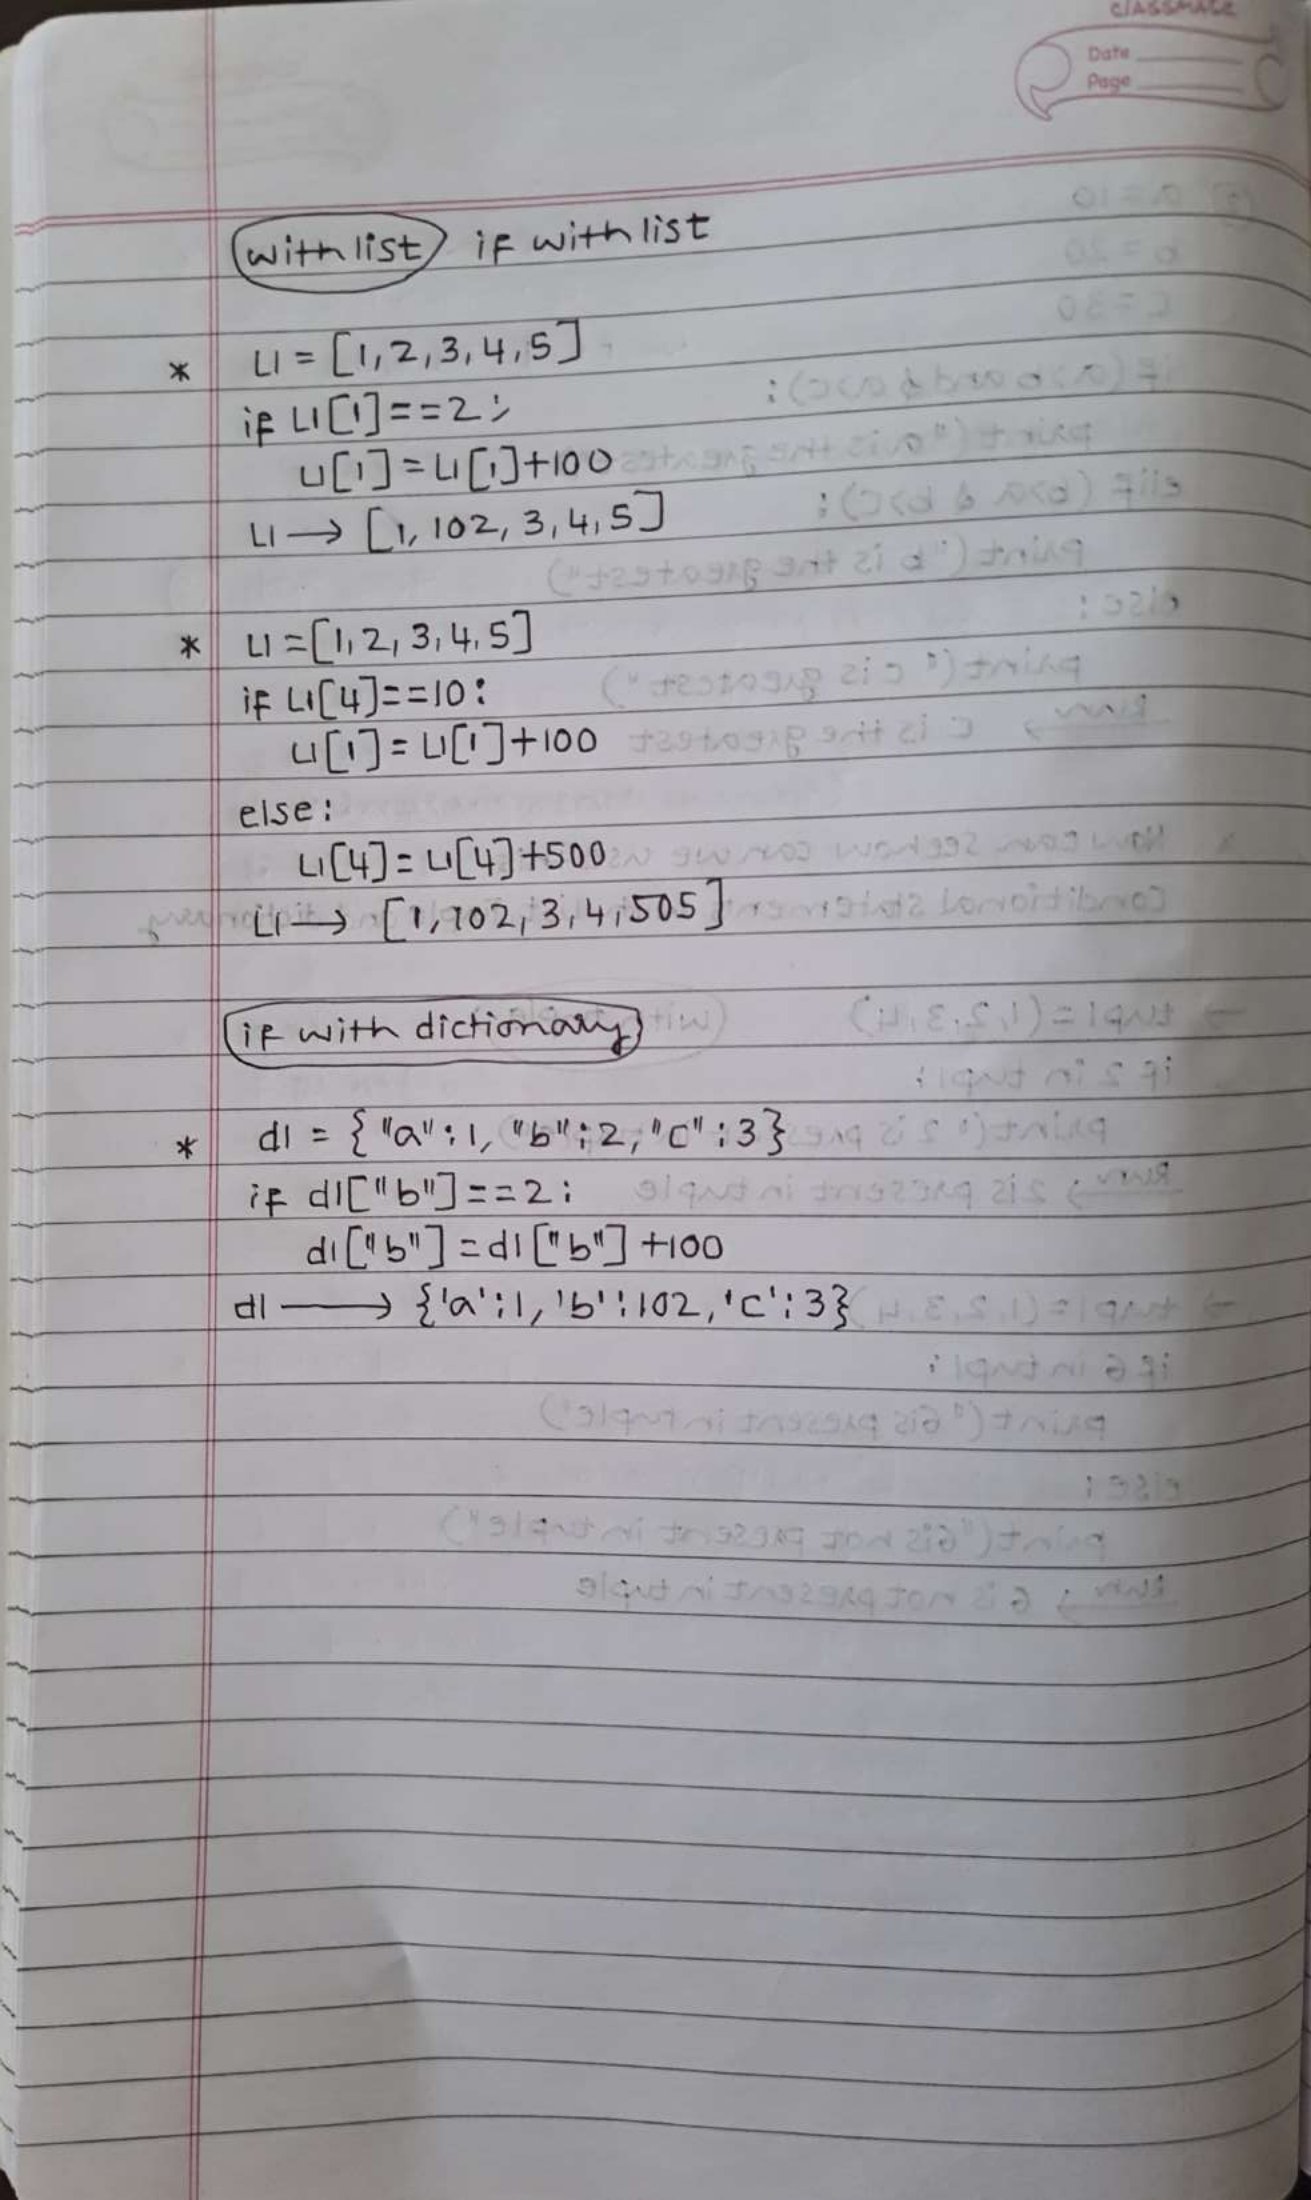 classmate
Date
Page
with list if with list
* L1 = [1, 2, 3, 4, 5]
if L1[1]==2:
L1[1] = L1[1]+100
L1 → [1, 102, 3, 4, 5]
* L1 = [1, 2, 3, 4, 5]
if L1[4]==10:
L1[1] = L1[1]+100
else:
L1[4] = L1[4]+500
L1 → [1, 102, 3, 4, 505]
if with dictionary
* d1 = {"a":1, "b":2, "c":3}
if d1["b"]==2:
d1["b"] = d1["b"] +100
d1 → {'a':1, 'b':102, 'c':3}